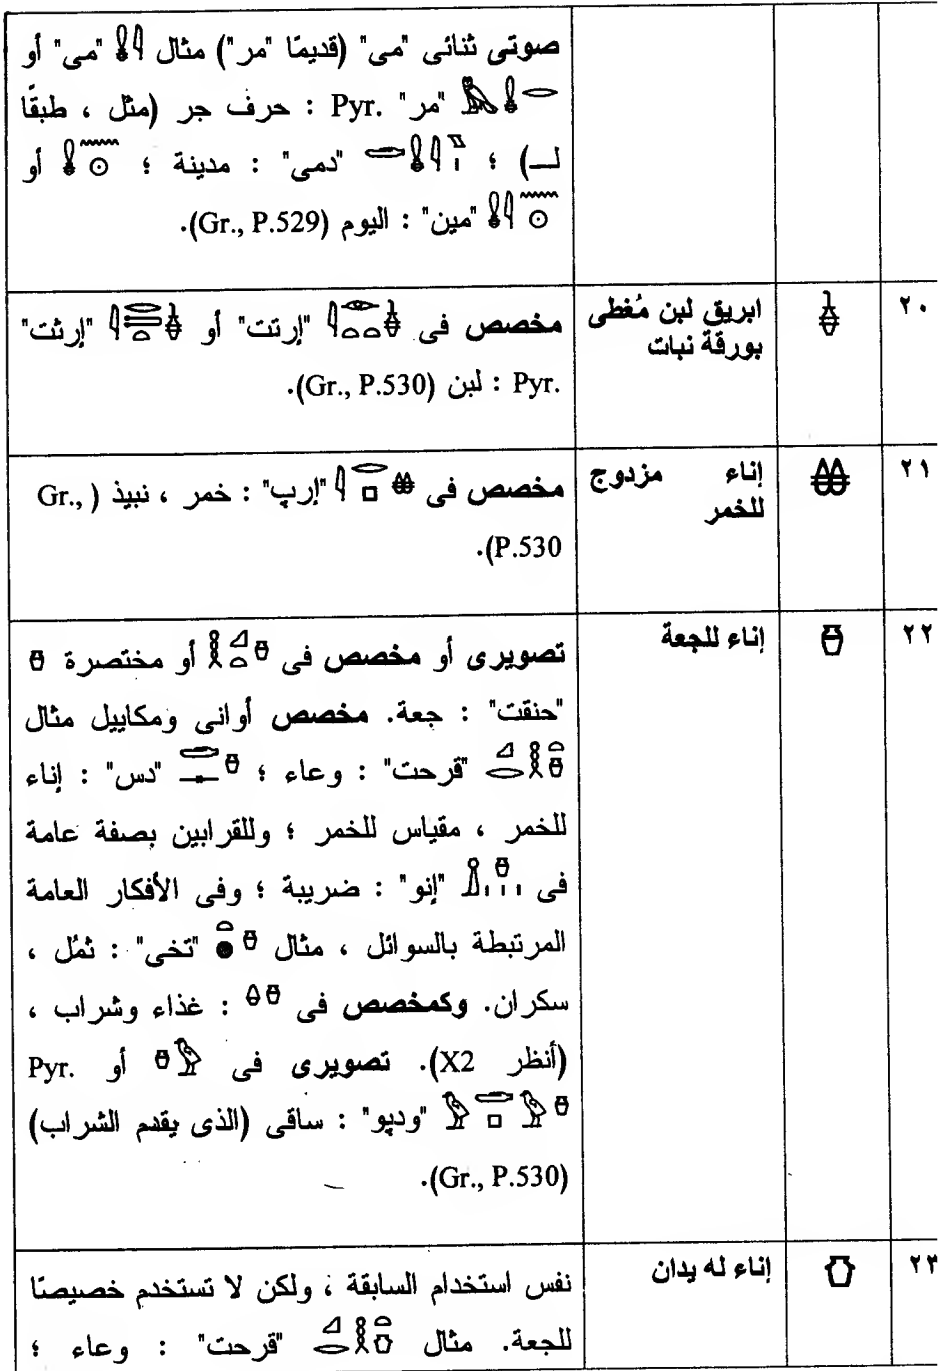 صوتى ثنائى "مى" (قديمًا "مر") مثال 𓏇𓇋 "مى" أو
𓅓𓏇𓂋 "مر" Pyr. : حرف جر (مثل ، طبقًا
لـــ) ؛ 𓂧𓏇𓇋 "دمى" : مدينة ؛ 𓏇𓈖𓇳 أو
𓏇𓇋𓈖𓇳 "مين" : اليوم (Gr., P.529).
٢٠ 𓏊 ابريق لبن مُغطى
بورقة نبات
مخصص فى 𓇋𓁹𓏏𓏏𓏊 "إرتت" أو 𓇋𓂋𓍿𓏏𓏊 "إرثت"
Pyr. : لبن (Gr., P.530).
٢١ 𓏋 إناء مزدوج
للخمر
مخصص فى 𓇋𓂋𓊪𓏋 "إرپ" : خمر ، نبيذ (Gr.,
P.530).
٢٢ 𓏌 إناء للجعة
تصويرى أو مخصص فى 𓎛𓈎𓏏𓏊 أو مختصرة 𓏊
"حنقت" : جعة. مخصص أوانى ومكاييل مثال
𓈎𓂋𓎛𓏏𓏊 "قرحت" : وعاء ؛ 𓂧𓊃𓏊 "دس" : إناء
للخمر ، مقياس للخمر ؛ وللقرابين بصفة عامة
فى 𓏎𓏊𓏥 "إنو" : ضريبة ؛ وفى الأفكار العامة
المرتبطة بالسوائل ، مثال 𓏏𓐍𓏊 "تخى" : ثمُل ،
سكران. وكمخصص فى 𓏐𓏊 : غذاء وشراب ،
(أنظر X2). تصويرى فى 𓅱𓏊 أو Pyr.
𓅱𓂧𓊪𓅱𓏊 "ودپو" : ساقى (الذى يقدم الشراب)
(Gr., P.530).
٢٣ إناء له يدان
نفس استخدام السابقة ، ولكن لا تستخدم خصيصًا
للجعة. مثال 𓈎𓂋𓎛𓏏 "قرحت" : وعاء ؛